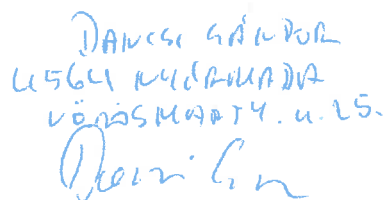 DANCSI SÁNDOR
4564 NYÍRMADA
VÖRÖSMARTY. u. 25.